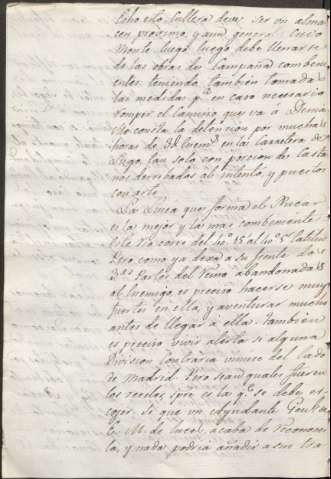 Echo esto, Cullera deve ser un alma
cen proximo, y aun general cuyo
Monte luego luego debe llenarse
de las obras de Campaña combeni
entes, teniendo tambien tomadas
las medidas pª en caso necesario
romper el camino que va á Denia
consta la detencion por muchas
horas de en la Carretera de
Lugo tan solo con porcion de Casta
ños derribados al intento y puestos
con arte.
La Linea que forma el Jucar
es la mejor, y la mas combeniente.
Este Rio corre del al
Pero como ya deva a su frente las
3as Partes del Reino abandonadas
al Enemigo es preciso hacerse muy
fuertes en ella, y aventurar mucho
antes de llegar á ella. Tambien
es preciso vivir alerta si alguna
Division contraria viniese del lado
de Madrid. Pero sean quales fuesen
los recelos, spre es la qe se debe es
coger, sé que un Ayudante Genl
E. M. de acaba de reconocer
la, y nada podria añadir a sus tra